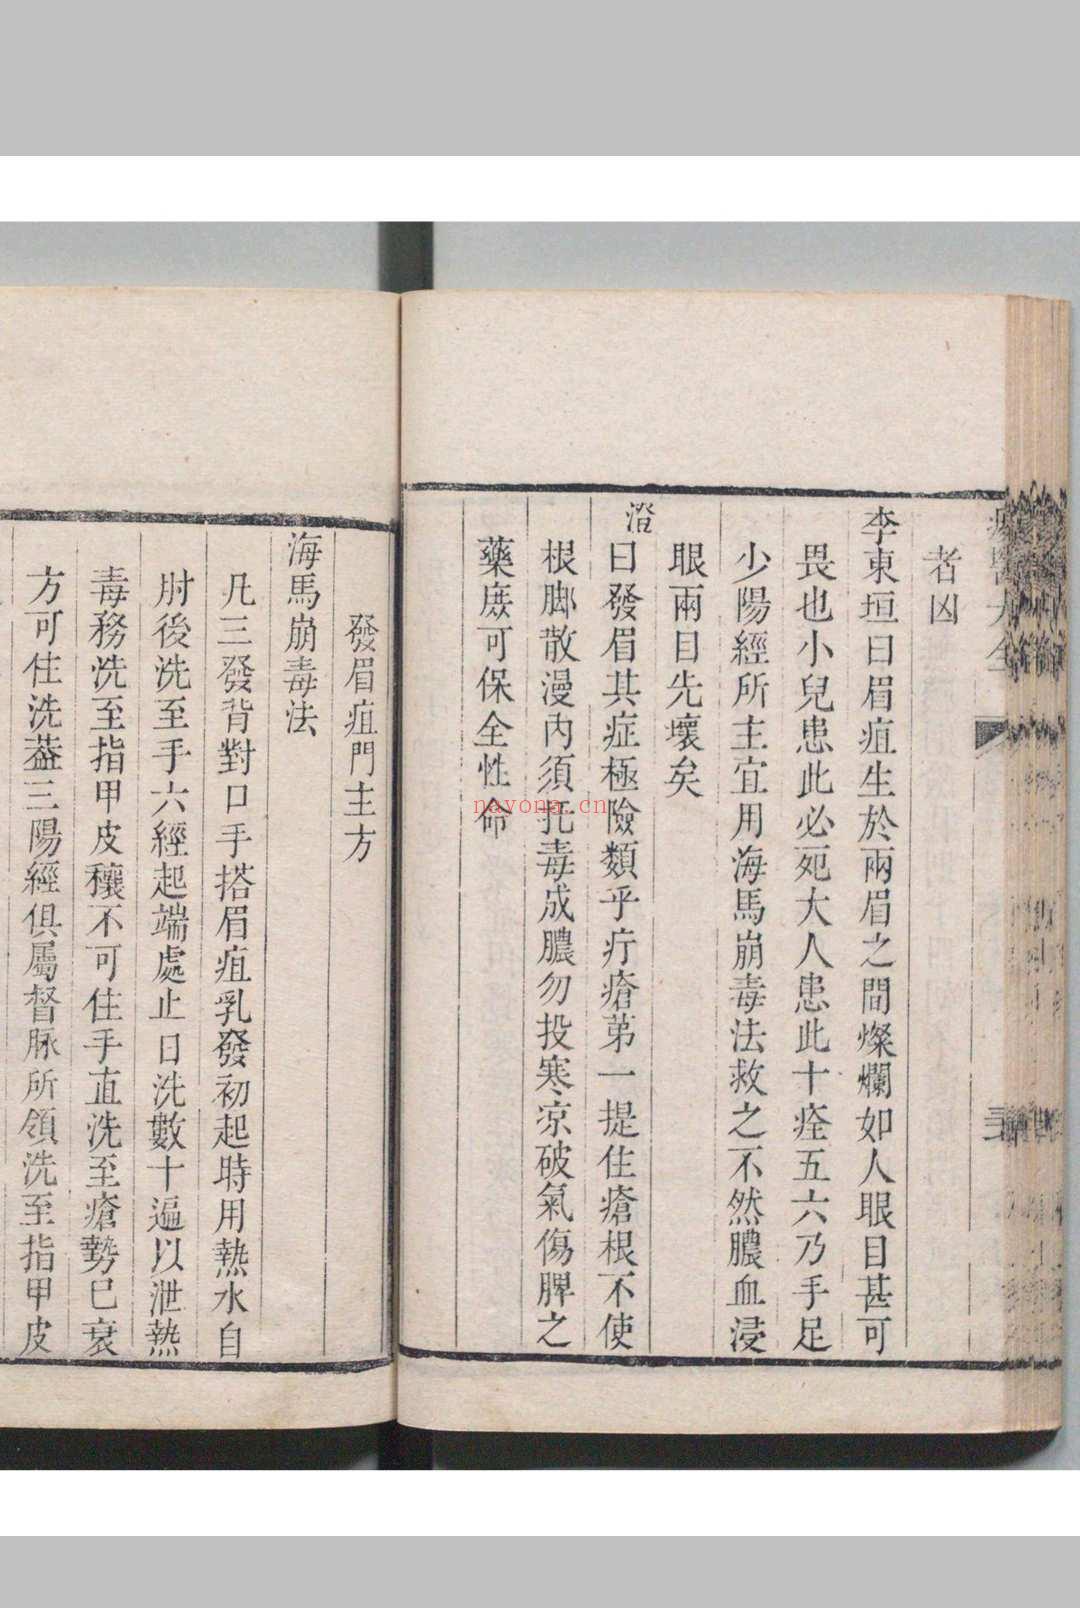 者凶
李東垣曰眉疽生於兩眉之間燦爛如人眼目甚可
畏也小兒患此必死大人患此十痊五六乃手足
少陽經所主宜用海馬崩毒法救之不然膿血浸
眼兩目先壞矣
澄曰發眉其症極險類乎疔瘡第一提住瘡根不使
根脚散漫內須托毒成膿勿投寒凉破氣傷脾之
藥庶可保全性命
發眉疽門主方
海馬崩毒法
凡三發背對口手搭眉疽乳發初起時用熱水自
肘後洗至手六經起端處止日洗數十遍以泄熱
毒務洗至指甲皮穰不可住手直洗至瘡勢已衰
方可住洗葢三陽經俱屬督脉所領洗至指甲皮
nayona.cn